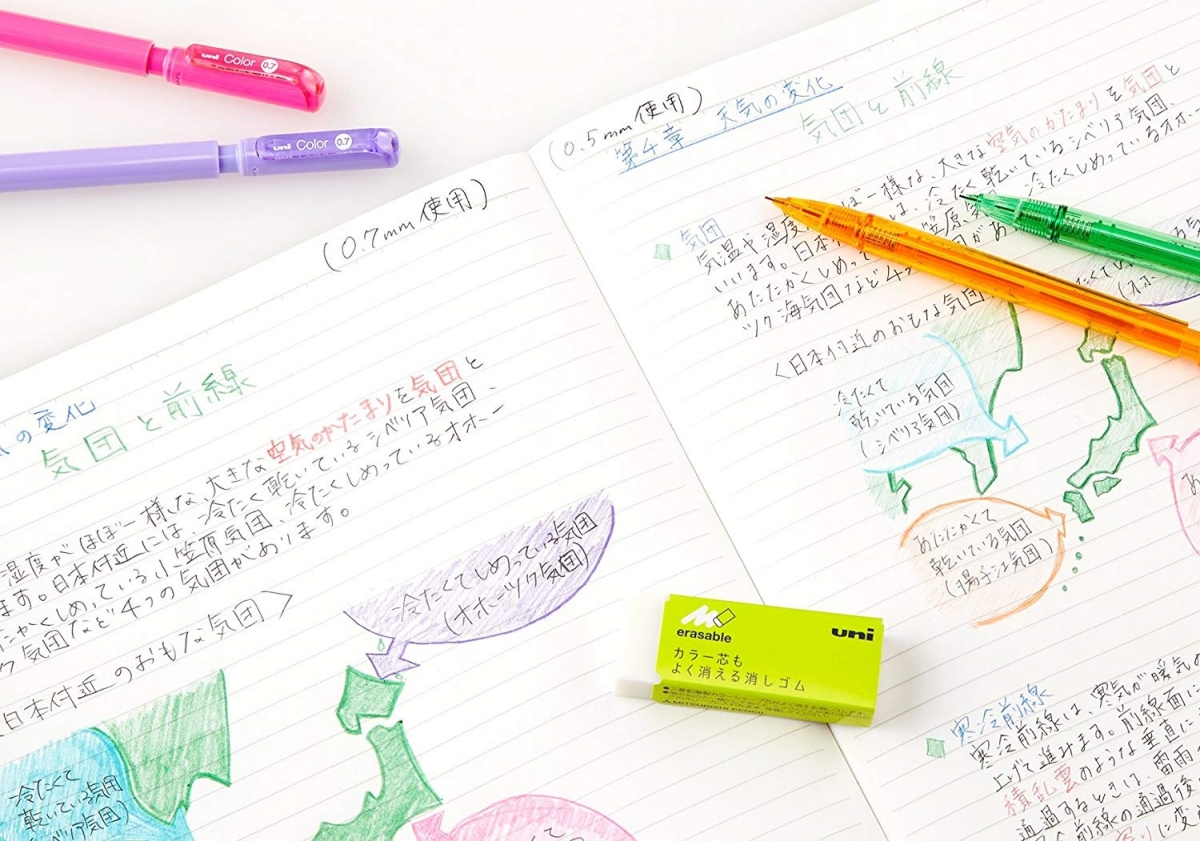 uni Color 0.7
uni Color 0.7
(0.7mm 使用)
の変化
気団と前線
湿度がほぼ一様な、大きな空気のかたまりを気団と
ます。日本付近には、冷たく乾いているシベリア気団、
たかくしめっている小笠原気団、冷たくしめっているオホー
ク海気団など4つの気団があります。
日本付近のおもな気団〉
冷たくてしめっている気団
(オホーツク気団)
冷たくて
乾いている気団
(シベリア気団)
(0.5mm 使用)
第4章 天気の変化
気団と前線
気団
気温や湿度 ほぼ一様な、大きな空気のかたまりを気団と
います。日本 は、冷たく乾いているシベリア気団、
あたたかくしめって 笠原 冷たくしめっているオホー
ツク海気団など4つ 団があ
〈日本付近のおもな気団
冷たくて
乾いている気団
(シベリア気団)
たくてし
(オホ
あたたかくて
乾いている気団
(揚子江気団)
あ
erasable
uni
カラー芯も
よく消える消しゴム
MITSUBISHI PENCIL
寒冷前線
寒冷前線は、寒気が暖気の
上げて進みます。前線面に
積乱雲のような垂直に
通過するときは、雷雨
前線の通過後
に変